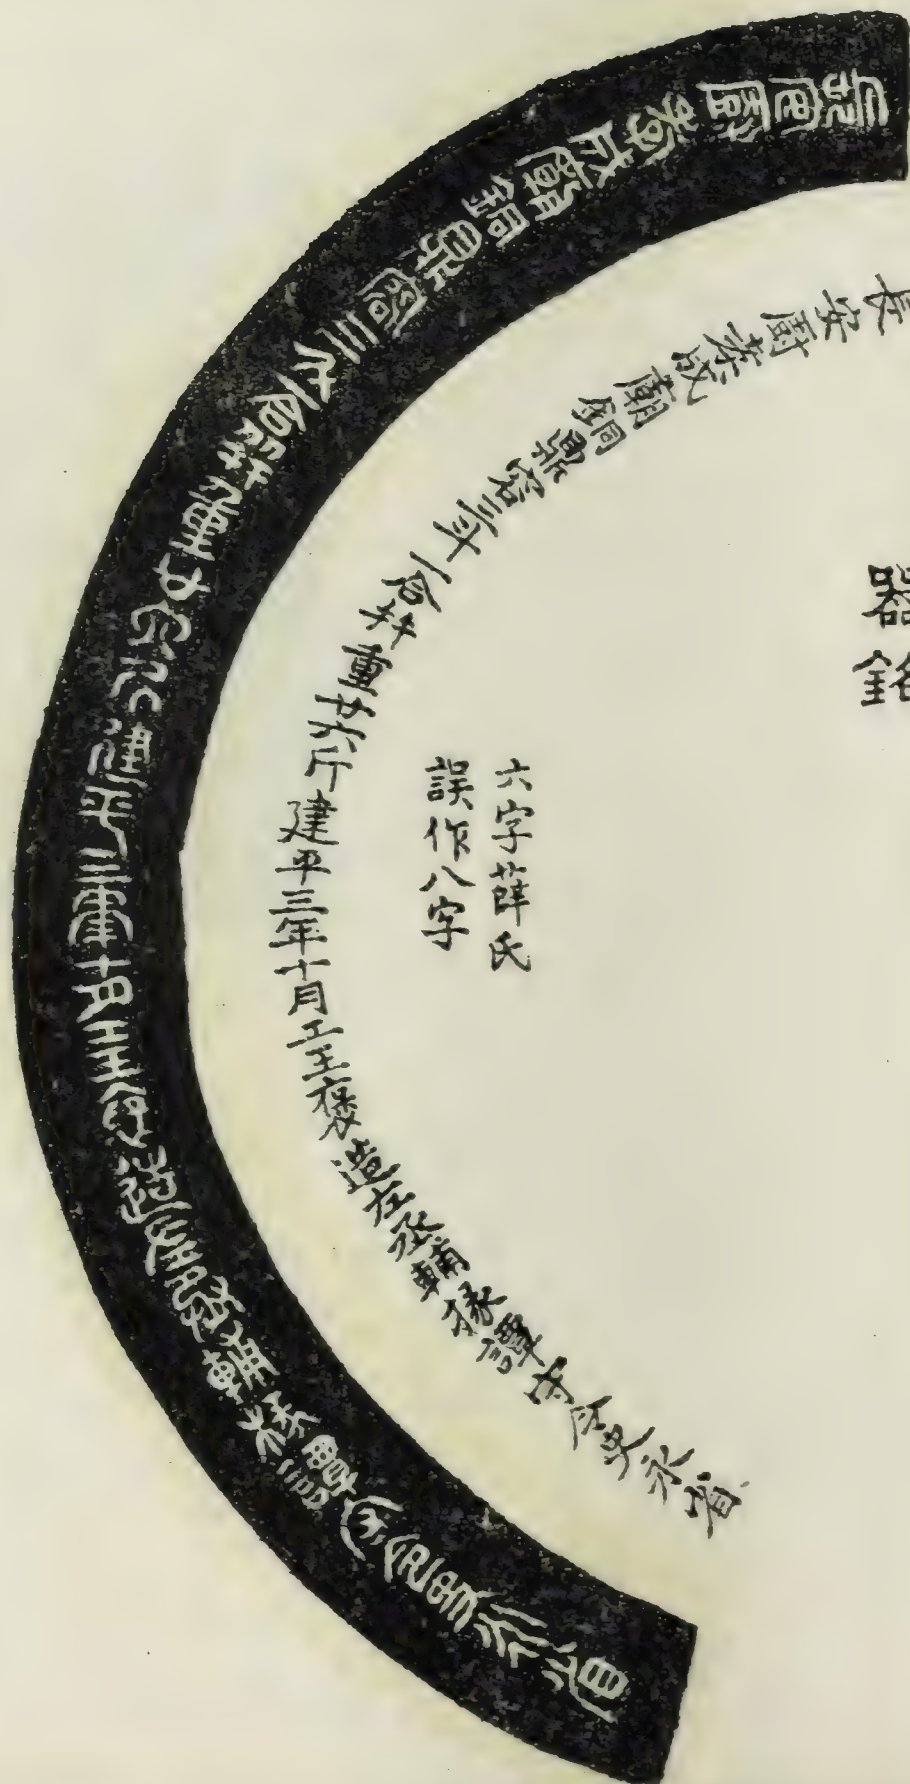 器銘
長安廚孝成廟銅鼎容三斗一合并重廿六斤建平三年十月工王褒造左丞輔掾譚守令史永省
長安廚孝成廟銅鼎容三斗一合并重廿六斤建平三年十月工王褒造左丞輔掾譚守令史永省
六字薛氏
誤作八字